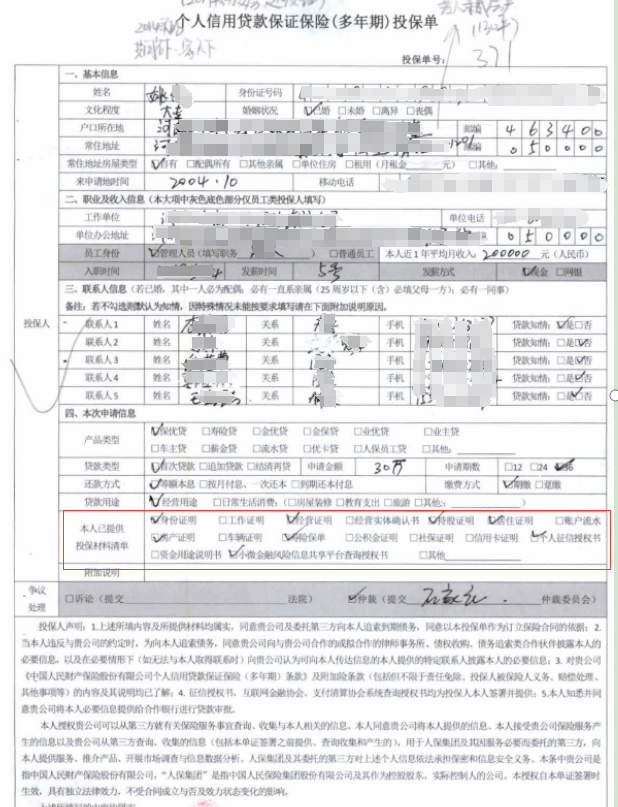 个人信用贷款保证保险(多年期)投保单
投保单号: 371
投保人
一、基本信息
姓名 身份证号码
文化程度 大专 婚姻状况 ☑已婚 □未婚 □离异 □丧偶
户口所在地 邮编 463400
常住地址 1201 邮编 050000
常住地址房屋类型 ☑自有 □配偶所有 □其他亲属 □单位住房 □租用(月租金 元) □其他:
来申请地时间 2004.10 移动电话
二、职业及收入信息(本大项中灰色底色部分仅员工类投保人填写)
工作单位 单位电话
单位办公地址 050000
员工身份 ☑管理人员(填写职务 ) □普通员工 本人近1年平均月收入: 200000 元(人民币)
入职时间 发薪时间 5号 发薪方式 ☑现金 □网银
三、联系人信息(若已婚,其中一人必为配偶;必有一直系亲属(25周岁以下(含)必填父母一方);必有一同事)
备注:若不勾选则默认为知情,因特殊情况未能按要求填写请在下面附加说明原因。
联系人1 姓名 关系 手机 贷款知情: ☑是□否
联系人2 姓名 关系 手机 贷款知情: □是☑否
联系人3 姓名 关系 手机 贷款知情: □是☑否
联系人4 姓名 关系 手机 贷款知情: □是☑否
联系人5 姓名 关系 手机 贷款知情: □是☑否
四、本次申请信息
产品类型 ☑保优贷 □寿险贷 □金优贷 □金保贷 □业优贷 □业主贷
□车主贷 □薪金贷 □流水贷 □优卡贷 □人保员工贷 □其他:
贷款类型 ☑首次贷款 □追加贷款 □结清再贷 申请金额 30万 申请期数 □12 □24 ☑36
还款方式 ☑等额本息 □按月付息、一次还本 □到期还本付息 缴费方式 ☑期缴 □趸缴
贷款用途 ☑经营用途 □日常生活消费:(□房屋装修 □教育支出 □旅游 □其他: )
本人已提供
投保材料清单
☑身份证明 □工作证明 ☑经营证明 □经营实体确认书 ☑持股证明 ☑居住证明 □账户流水
☑房产证明 □车辆证明 ☑寿险保单 □公积金证明 □社保证明 □信用卡证明 ☑个人征信授权书
□资金用途说明书 ☑小微金融风险信息共享平台查询授权书 □其他
附加说明
争议
处理
□诉讼(提交 法院) ☑仲裁(提交 石家庄 仲裁委员会)
投保人声明:1.上述所填内容及所提供材料均属实,同意贵公司及委托第三方向本人追索到期债务,同意以本投保单作为订立保险合同的依据;2.
当本人违反与贵公司的约定时,为向本人追索债务,同意贵公司向与贵公司合作的或拟合作的律师事务所、债权收购、债务追索类合作伙伴披露本人的
必要信息,以及在必要情形下(如无法与本人取得联系时)向贵公司认为可向本人传达信息的本人提供的特定联系人披露本人的必要信息;3.对贵公司
《中国人民财产保险股份有限公司个人信用贷款保证保险(多年期)条款》及附加险条款(包括但不限于责任免除、投保人被保险人义务、赔偿处理、
其他事项等)的内容及其说明均已了解;4.征信授权书、互联网金融协会、支付清算协会系统查询授权书均为投保人本人签署并提供;5.本人知悉并同
意贵公司将本人必要信息提供给合作银行进行贷款审批。
本人授权贵公司可以从第三方就有关保险服务事宜查询、收集与本人相关的信息。本人同意贵公司将本人提供的信息、本人接受贵公司保险服务产
生的信息以及贵公司从第三方查询、收集的信息(包括本单证签署之前提供、查询收集和产生的),用于人保集团及其因服务必要而委托的第三方,向
本人提供服务、推介产品、开展市场调查与信息数据分析。人保集团及其委托的第三方对上述个人信息依法承担保密和信息安全义务。本条中贵公司是
指中国人民财产保险股份有限公司,“人保集团”是指中国人民保险集团股份有限公司及其作为控股股东、实际控制人的公司。本授权自本单证签署时
生效,具有独立法律效力,不受合同成立与否及效力状态变化的影响。